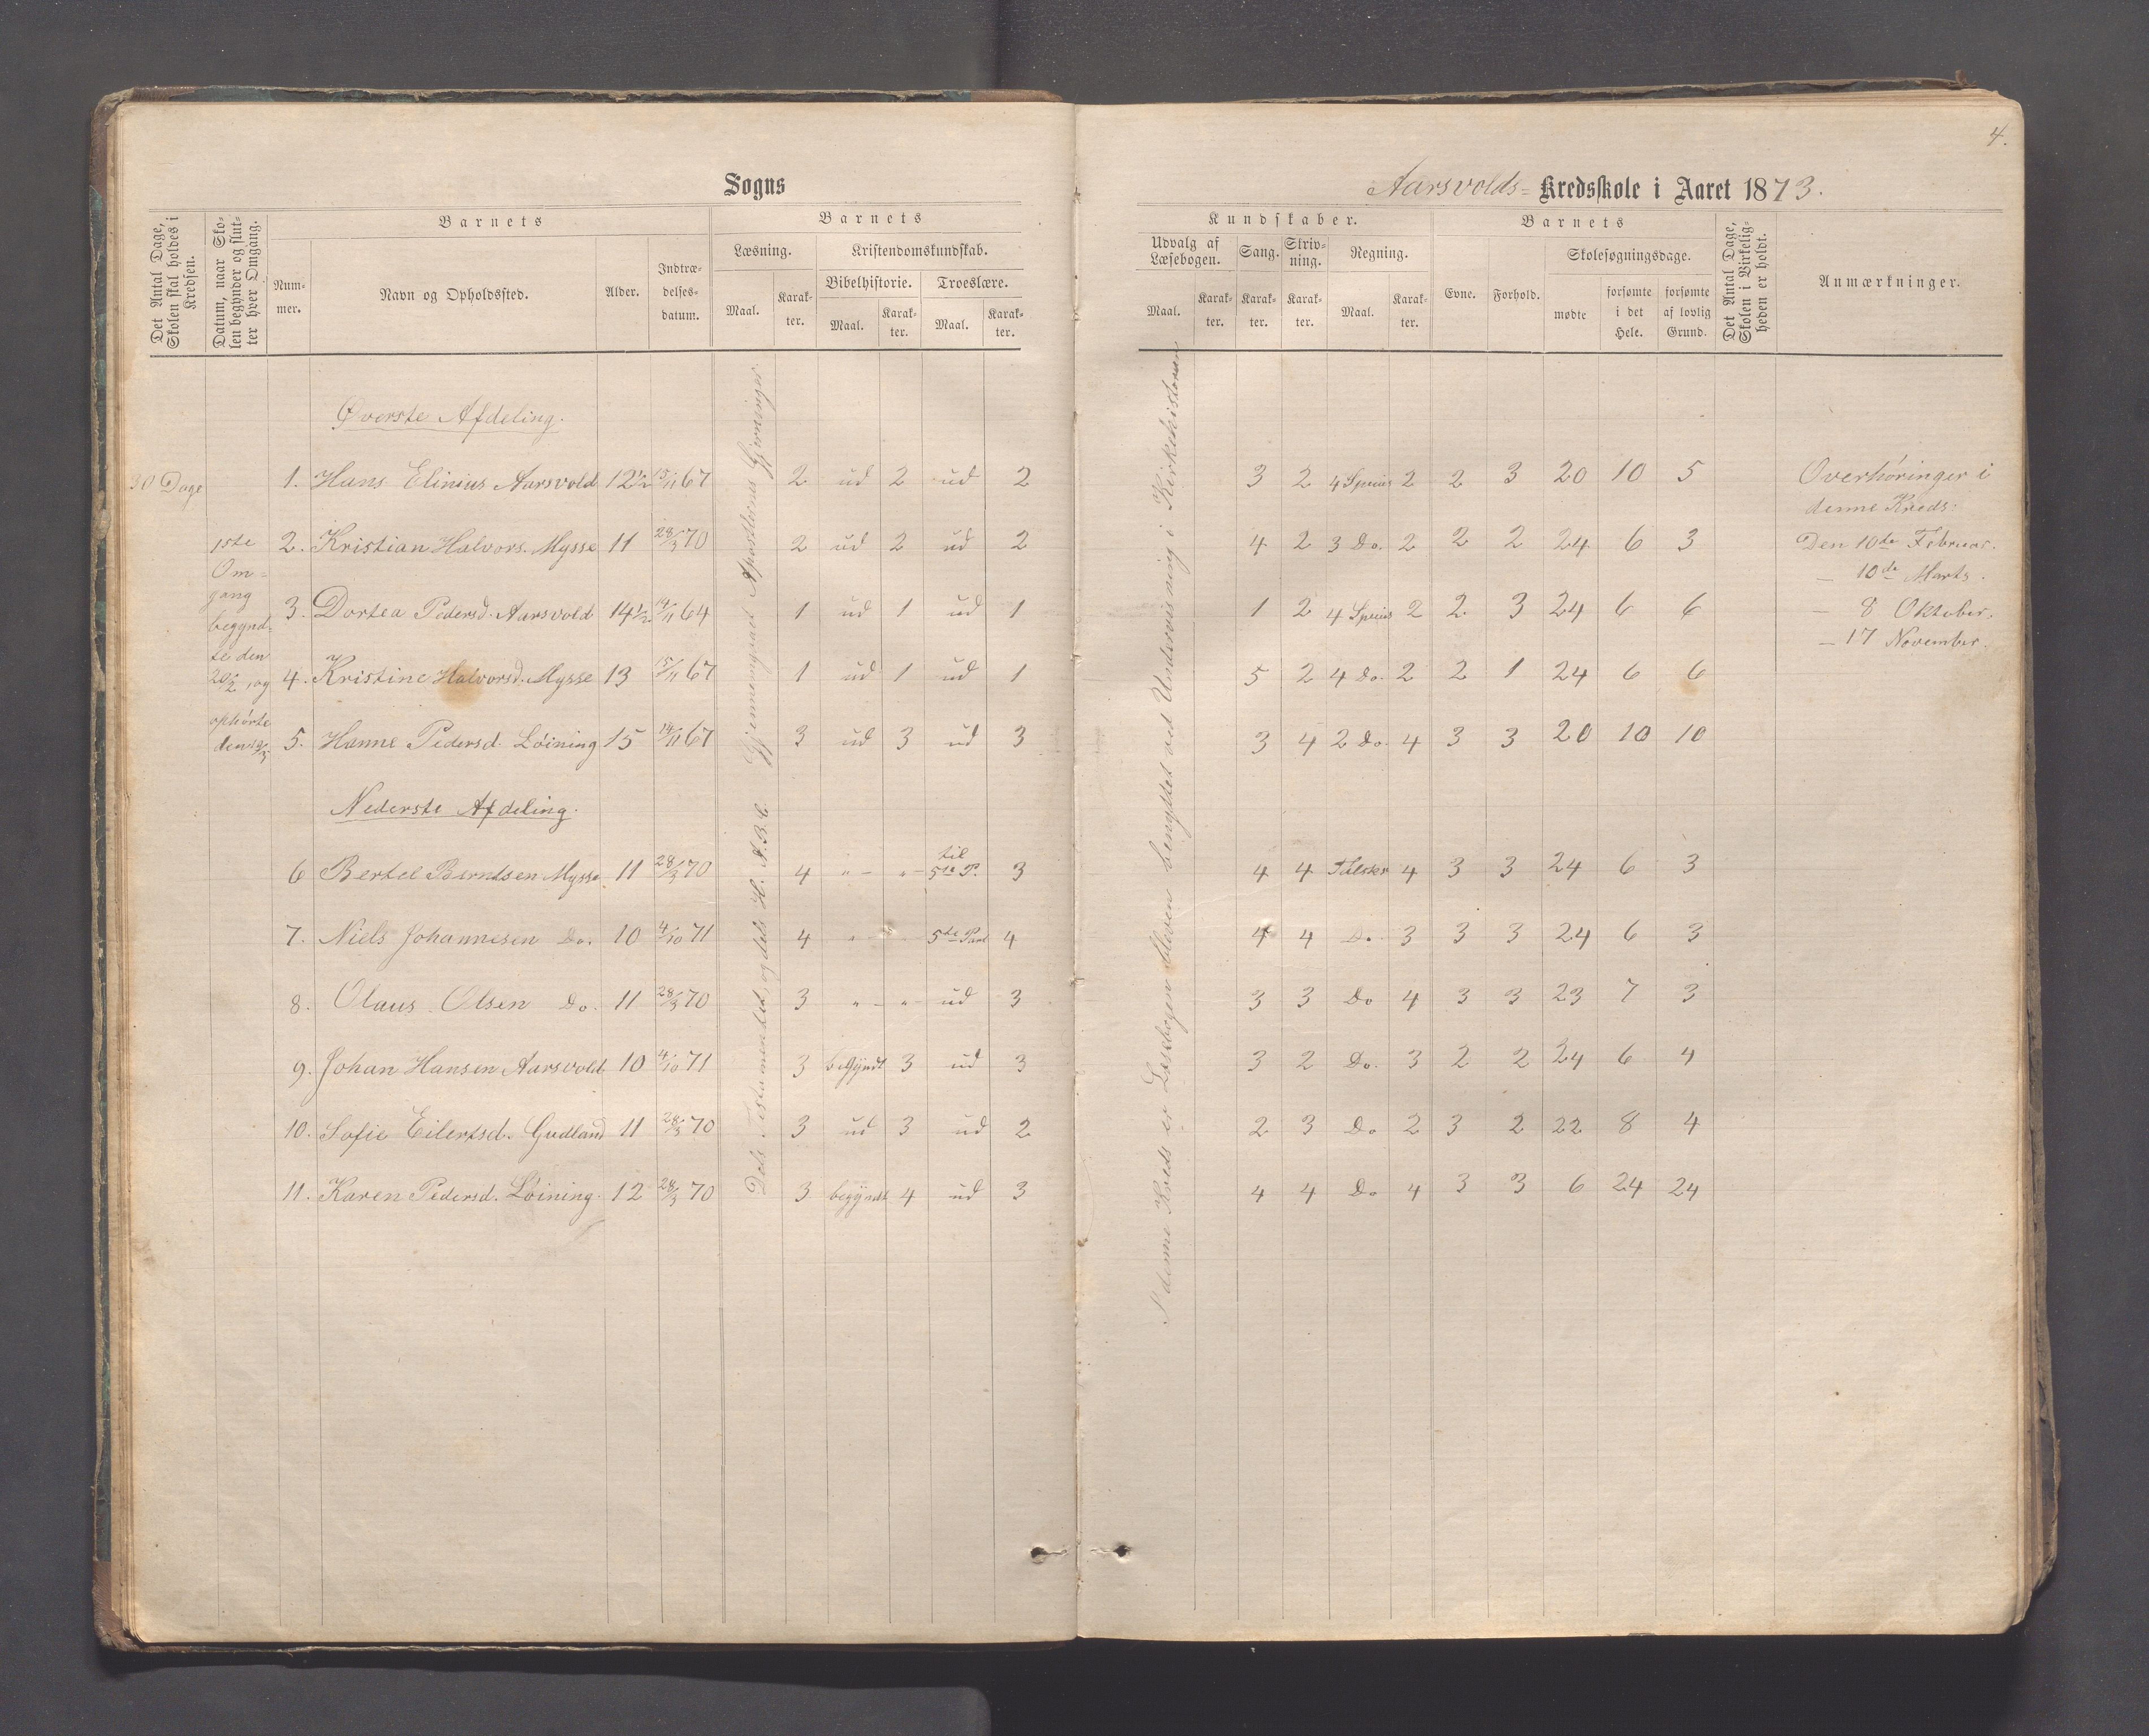 4.
Sogns
Aarsvolds- Kredsskole i Aaret 1873.
Det Antal Dage, Skolen skal holdes i Kredsen.
Datum, naar Skolen begynder og slutter hver Omgang.
Barnets
Nummer.
Navn og Opholdssted.
Alder.
Indtrædelsesdatum.
Barnets
Læsning.
Kristendomskundskab.
Maal.
Karakter.
Bibelhistorie.
Troeslære.
Maal.
Karakter.
Maal.
Karakter.
Kundskaber.
Udvalg af Læsebogen.
Sang.
Skrivning.
Regning.
Maal.
Karakter.
Karakter.
Karakter.
Maal.
Karakter.
Barnets
Evne.
Forhold.
Skolesøgningsdage.
mødte
forsømte i det Hele.
forsømte af lovlig Grund.
Det Antal Dage, Skolen i Virkeligheden er holdt.
Anmærkninger.
30 Dage
1ste
Om-
gang
begynd-
te den
20/2, og
ophørte
den
Dels Testamentet, og dels H. A.B.C. Gjennemgaaet Apostlernes Gjerninger.
I denne Kreds er Læsebogen bleven benyttet ved Undervisning i Kirkehistorien
Øverste Afdeling.
1. Hans Elinius Aarsvold 12½ 15/11 67 2 ud 2 ud 2 3 2 4 Species 2 2 3 20 10 5
2. Kristian Halvors. Mysse 11 28/3 70 2 ud 2 ud 2 4 2 3 Do. 2 2 2 24 6 3
3. Dortea Pedersd. Aarsvold 14½ 14/11 64 1 ud 1 ud 1 1 2 4 Species 2 2 3 24 6 6
4. Kristine Halvorsd. Mysse 13 15/11 67 1 ud 1 ud 1 5 2 4 Do. 2 2 1 24 6 6
5. Hanne Pedersd. Løining 15 14/11 67 3 ud 3 ud 3 3 4 2 Do. 4 3 3 20 10 10
Nederste Afdeling.
6 Bertel Berndsen Mysse 11 28/3 70 4 " - " - til 5te P. 3 4 4 4 3 3 24 6 3
7. Niels Johannesen Do. 10 4/10 71 4 " 5te Part 4 4 4 Do. 3 3 3 24 6 3
8. Olaus Olsen Do. 11 28/3 70 3 " - " - ud 3 3 3 Do 4 3 3 23 7 3
9. Johan Hansen Aarsvold 10 4/10 71 3 begyndt 3 ud 3 3 2 Do. 3 2 2 24 6 4
10. Sofie Eilertsd. Gudland 11 28/3 70 3 ud 3 ud 2 2 3 Do 2 3 2 22 8 4
11. Karen Pedersd. Løining. 12 28/3 70 3 begyndt 4 ud 3 4 4 Do 4 3 3 6 24 24
Overhøringer i
denne Kreds:
Den 10de Februar.
— 10de Marts.
— 8 Oktober.
— 17 November.